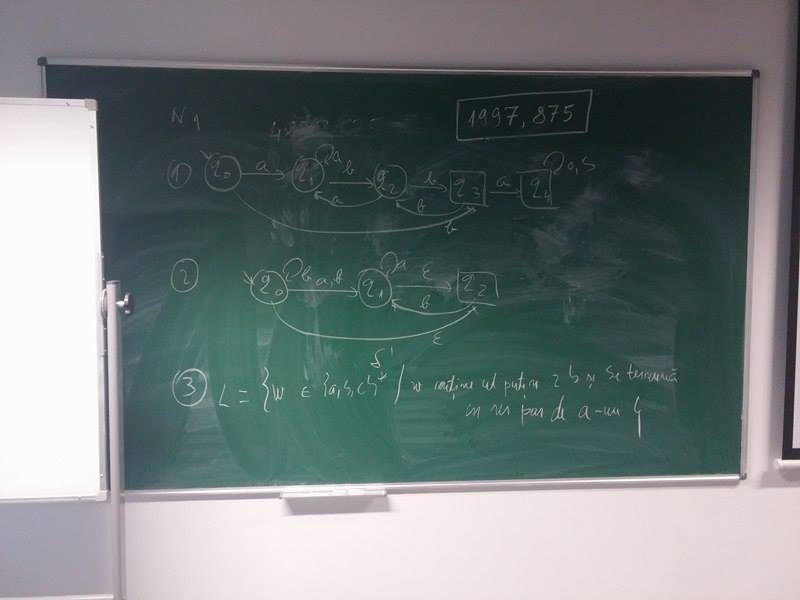 N 1
1997, 875
1 q0 a q1 a b q2 b q3 a q4 a, b
a b
b
2 q0 b a, b q1 a ε q2
b
ε
3 L = { w ∈ {a, b, c}* / w conține cel puțin 2 b și se termină
în nr par de a-uri }